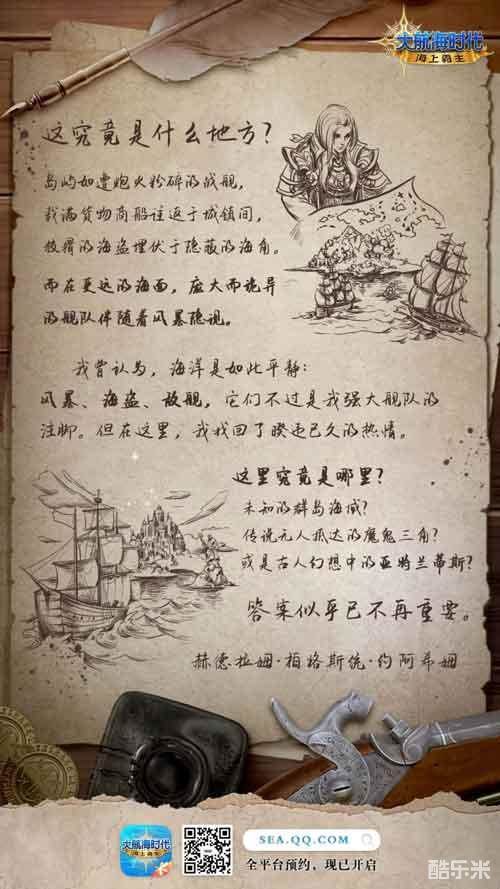 大航海时代
海上霸主
这究竟是什么地方？
岛屿如遭炮火粉碎的战舰，
载满货物商船往返于城镇间，
狡猾的海盗埋伏于隐蔽的海角。
而在更远的海面，庞大而诡异
的舰队伴随着风暴隐现。
我曾认为，海洋是如此平静：
风暴、海盗、敌舰，它们不过是我强大舰队的
注脚。但在这里，我找回了暌违已久的热情。
这里究竟是哪里？
未知的群岛海域？
传说无人抵达的魔鬼三角？
或是古人幻想中的亚特兰蒂斯？
答案似乎已不再重要。
赫德拉姆·柏格斯统·约阿希姆
大航海时代
海上霸主
SEA.QQ.COM
全平台预约，现已开启
酷乐米